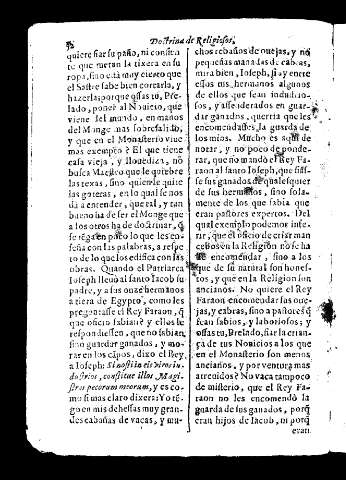 Doctrina de Religiosos,
quiere fiar su paño, ni consien
te que metan la tixera en su
ropa, sino està muy cierto que
el Sastre sabe bien cortarla, y
hazerla; porque ossas tu, Pre-
lado, poner al Nouicio, que
viene del mundo, en manos
del Monge mas sobresalido,
y que en el Monasterio viue
mas exempto? El que tiene
casa vieja, y llouediza, no
busca Maestro que le quiebre
las texas, sino quien le quite
las goteras, en lo qual nos
dà a entender, que tal, y tan
bueno ha de ser el Monge que
a los otros ha de doctrinar, q̃
se tẽga en poco lo que les en-
seña con las palabras, a respe
to de lo que los edifica con las
obras. Quando el Patriarca
Ioseph lleuò al santo Iacob su
padre, y a sus onze hermanos
a tiera de Egypto, como les
preguntasse el Rey Faraon, q̃
que oficio sabian? y ellos le
respondiessen, que no sabian
sino guardar ganados, y mo-
rar en los cãpos, dixo el Rey,
a Ioseph: Si nosti in eis viros in-
dustrios, constitue illos Magi-
stros pecorum meorum, y es co-
mo si mas claro dixera: Yo tẽ-
go en mis dehessas muy gran-
des cabañas de vacas, y mu-
chos rebaños de ouejas, y no
pequeñas manadas de cabras,
mira bien, Ioseph, si ay entre
essos mis hermanos algunos
de ellos que sean industrio-
sos, y assederados en guar-
dar ganados, querria que les
encomendasses la guarda de
los mios. Mucho es aqui de
notar, y no poco de ponde-
rar, que no mandò el Rey Fa-
raon al santo Ioseph, que fias-
se sus ganados de qualesquier
de sus hermanos, sino sola-
mente de los que sabia que
eran pastores expertos. Del
qual exemplo podemos infe-
rir, que el oficio de criar man
cebos en la Religion no se ha
de encomendar, sino a los
que de su natural son hones-
tos, y que en la Religion son
ancianos. No quiere el Rey
Faraon encomendar sus oue-
jas, y cabras, sino a pastores q̃
sean sabios, y laboriosos; y
ossas tu, Prelado, fiar la crian-
ça de tus Nouicios a los que
en el Monasterio son menos
ancianos, y por ventura mas
atreuidos? No vaca tampoco
de misterio, que el Rey Fa-
raon no les encomendò la
guarda de sus ganados, porq̃
eran hijos de Iacob, ni porq̃
eran